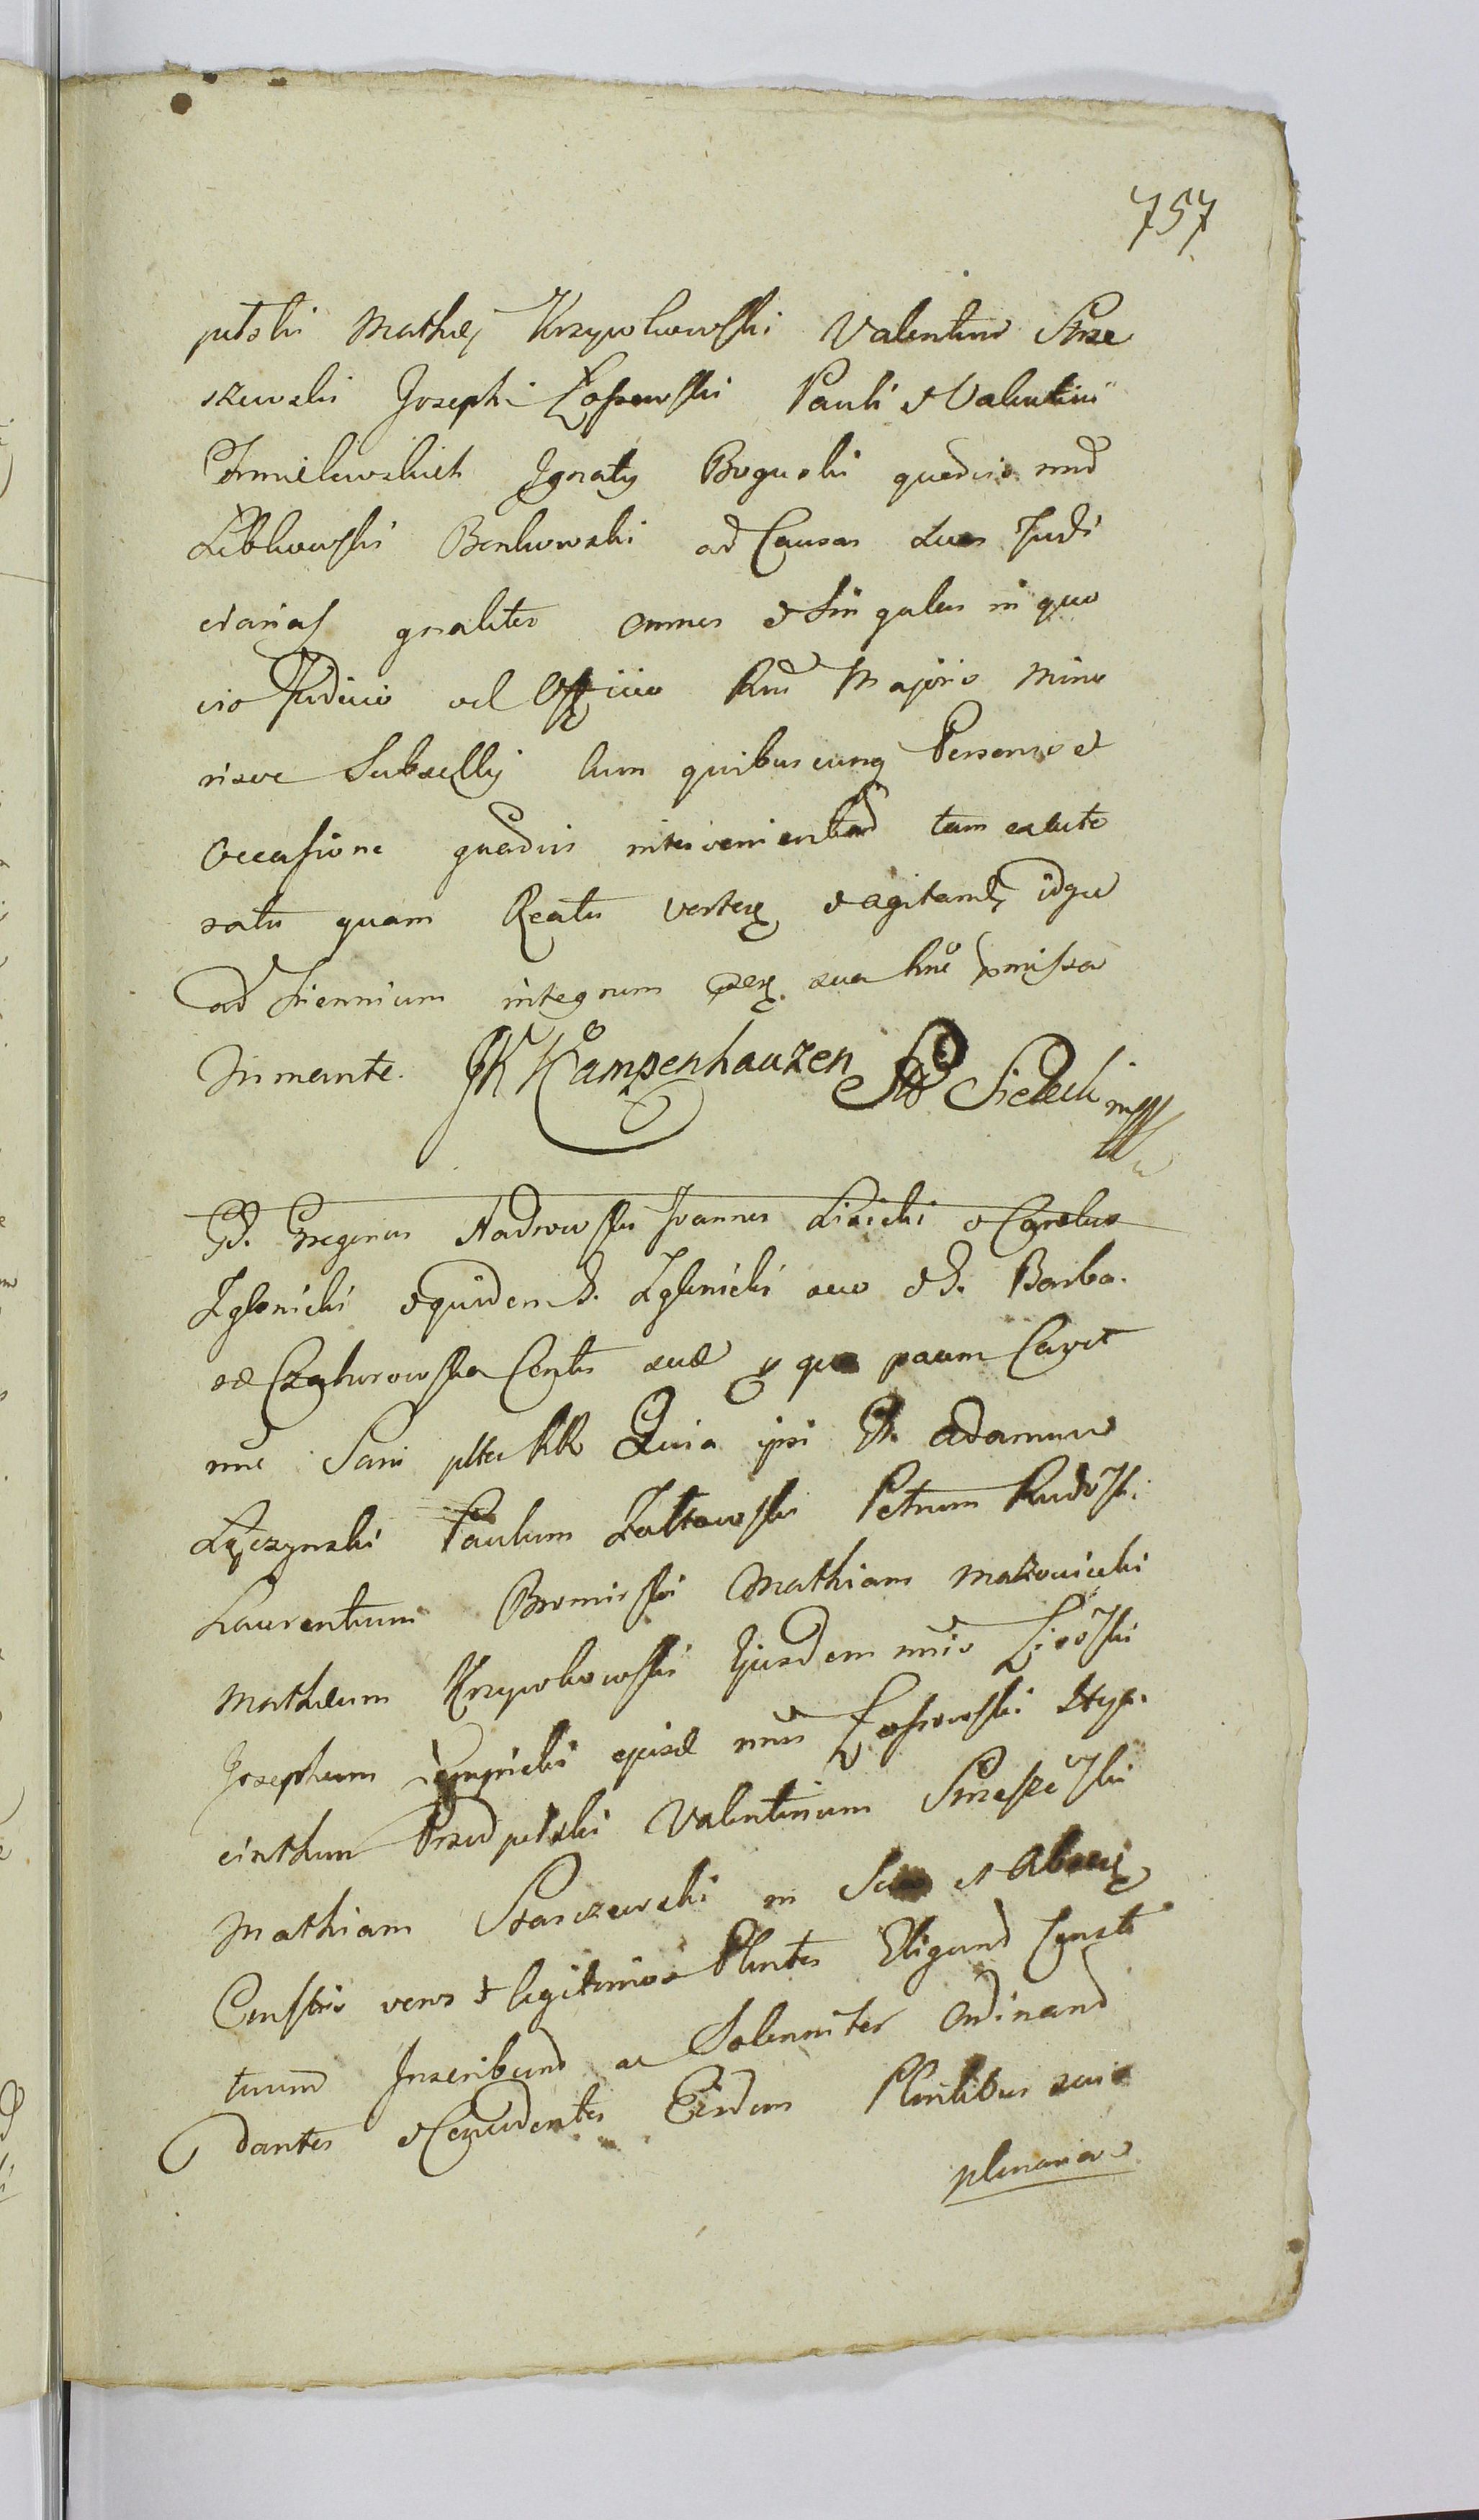 757
pelski Mathæj Krzywkowski Valentini Strze
szewski Josephi Łossowski Pauli et Valentini
Chmielewskich Ignatij Boguski quodvis nud
Libkowski Benkowski ad Causas suas Judi
ciarias gnaliter omnes et Singulas in quo
vis Judicio vel Officio Rni Majoris Mino
risve Subsellij Cum quibuscunq Personis et
Occasione quavis intervenientem tam
natu quam Reatu verten et agitand idque
ad Triennium integrum sua hne
Inmante. JK Kampenhauzen Sielecki mp
Gd. Gregorius Nadrowski Joannes Lisicki et Carolus
Zglenicki et quidem G. Zglenicki suo et G. Barba.
ræ Czachorowska Conts suæ quo paum Cavet
nne Sani plter RR Quia ipsi G. Adamum
Łączynski Paulum Załtowski Petrum Rudowski
Laurentium Bromirski Mathiam Makowiecki
Mathæum Krzywkowski Ejusdem nnis
Josephum Łempicki ejusd nnis Łossowski Hya.
cinthum Przedpełski Valentinum Strzeszewski
Mathiam Starczewski in et Absen
Constris veros et legitimos Plentes Eligend Constit
tuend Inscribend ac Solenniter Ordinand
dantes et Concedentes Eisdem Plentibus suis
plenariam